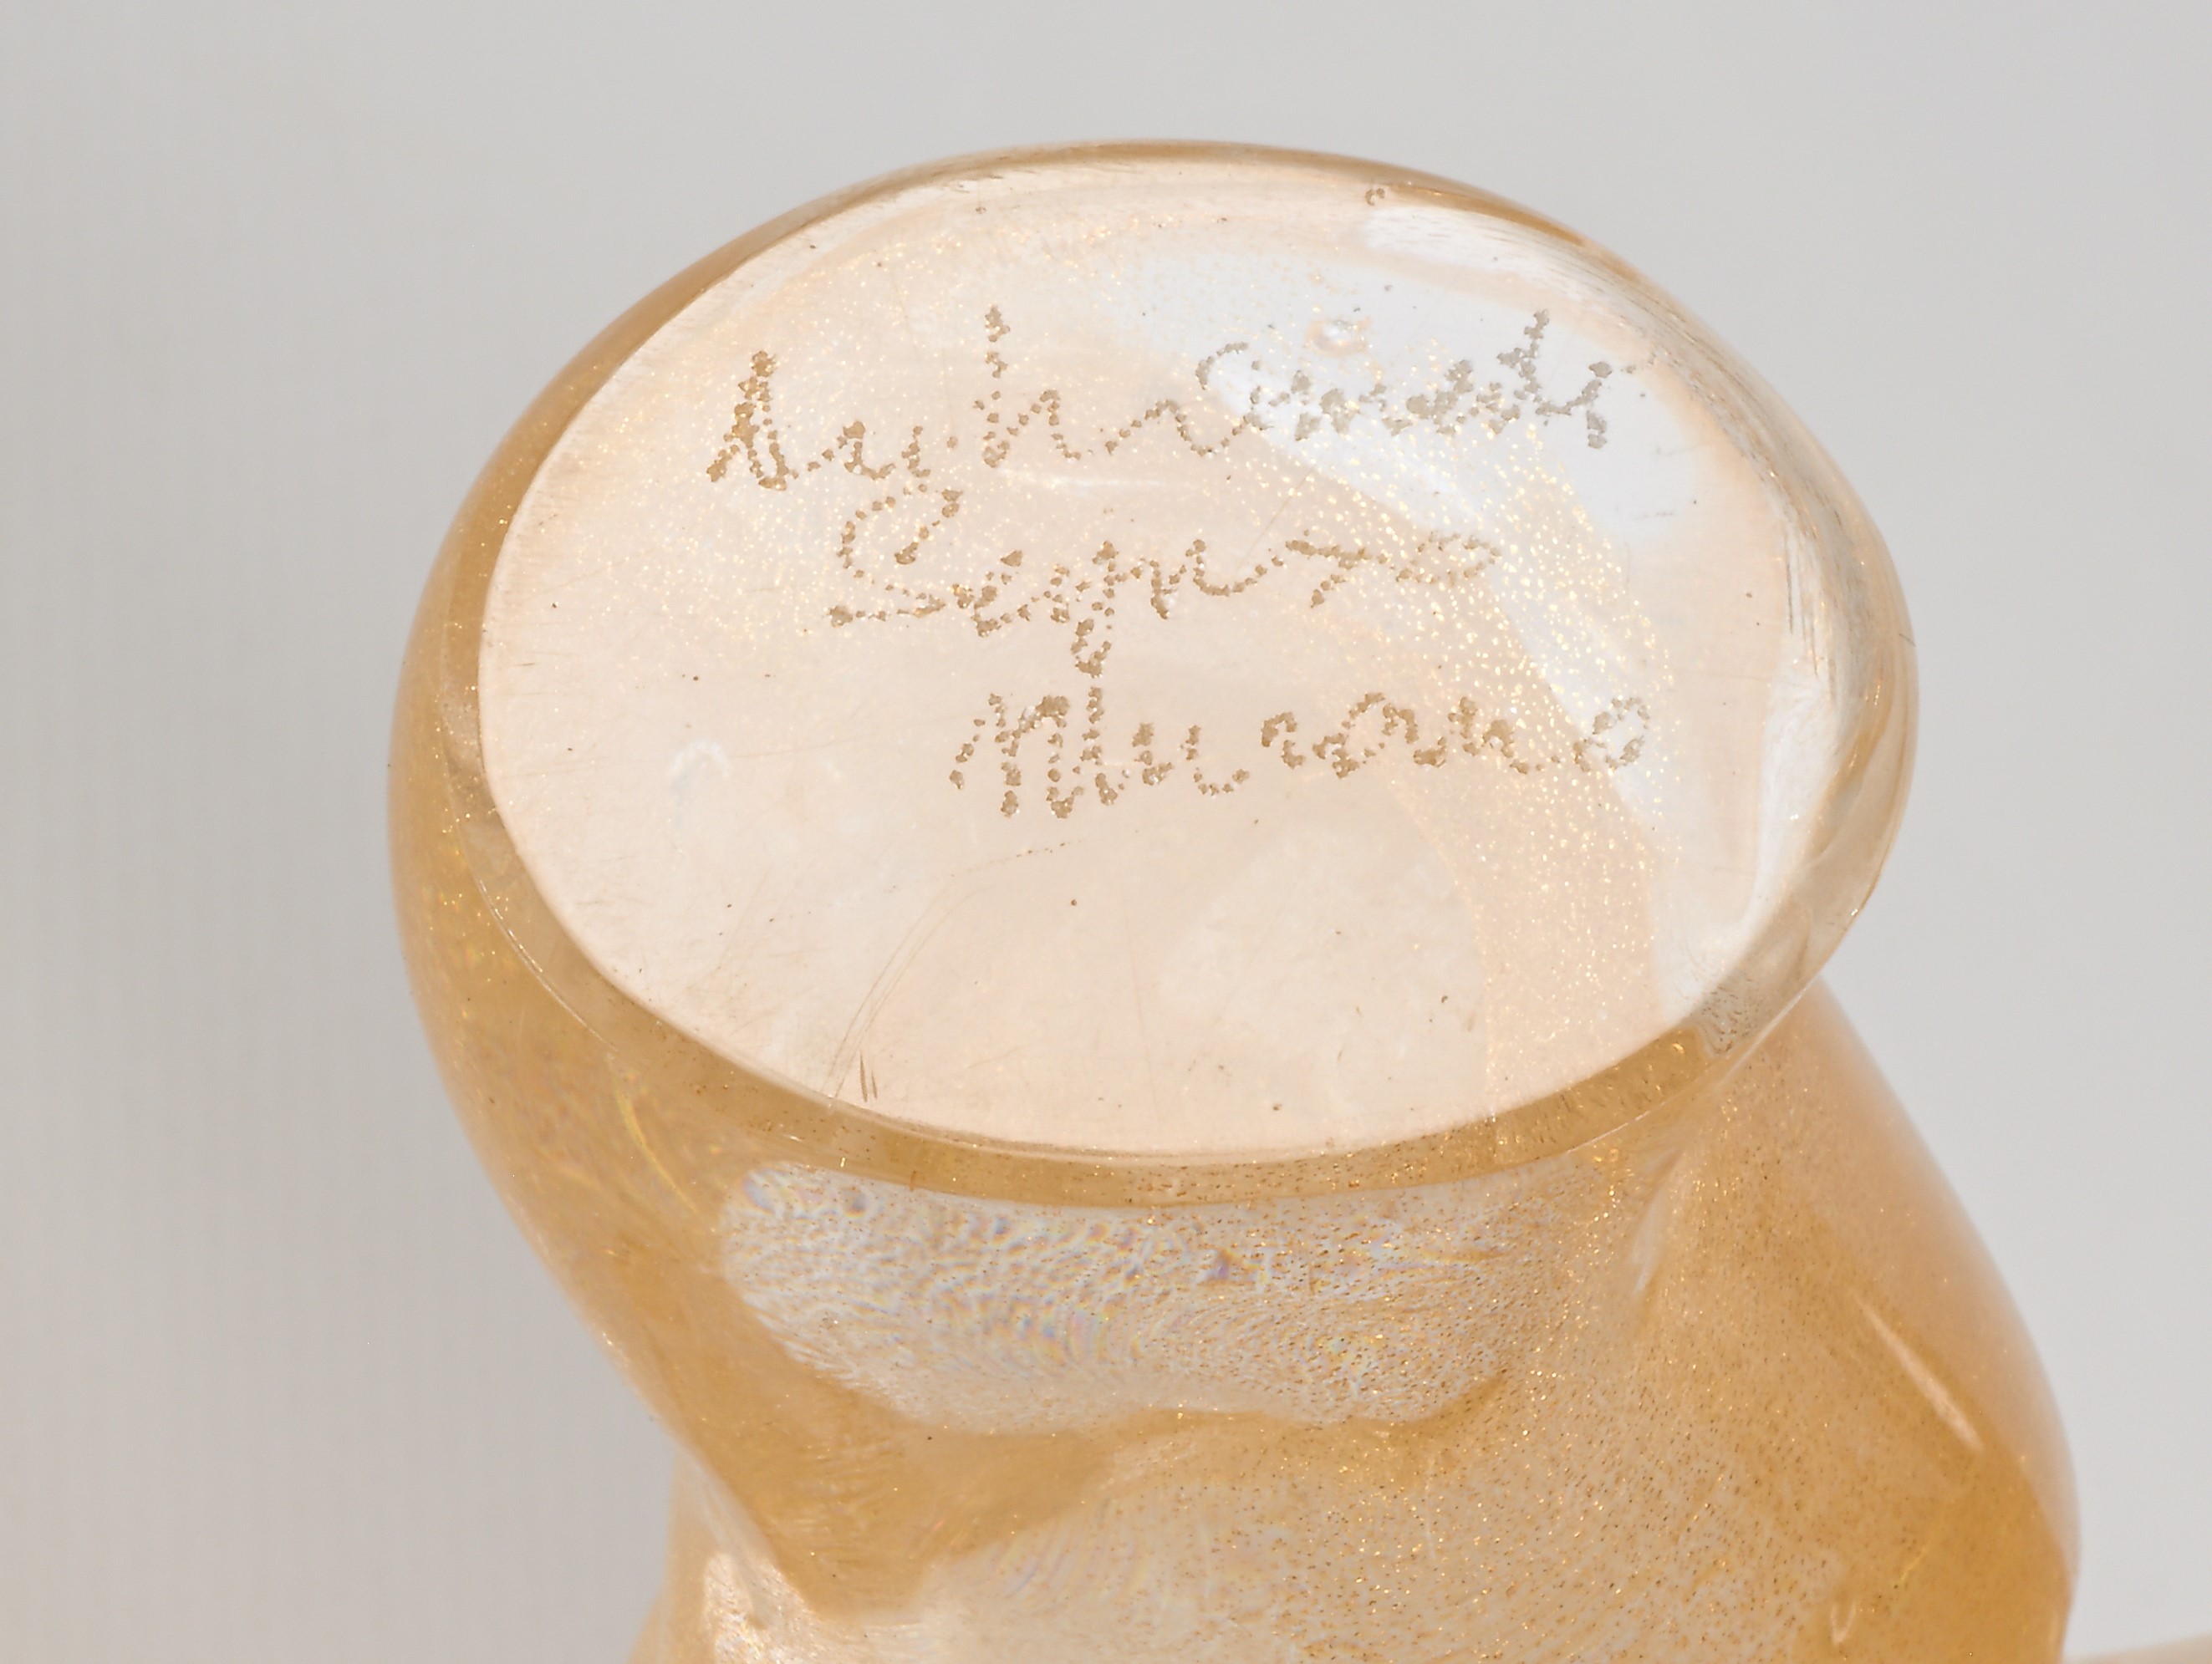 Archimede
Seguso
Murano